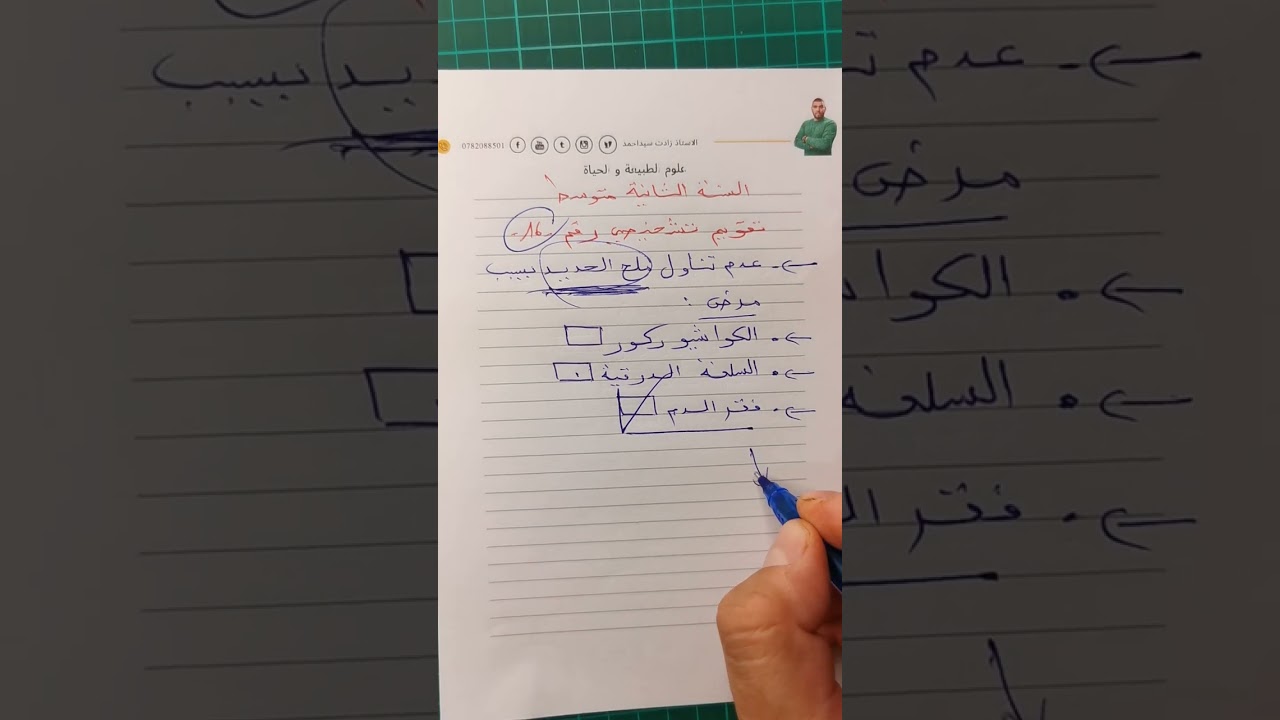 الاستاذ زادت سيداحمد 0782088501
علوم الطبيعة و الحياة
السنة الثانية متوسط
تقويم تشخيصي رقم -16-
عدم تناول ملح الحديد بسبب
مرض :
الكواشيوركور
السلعة الدرقية
فقر الدم